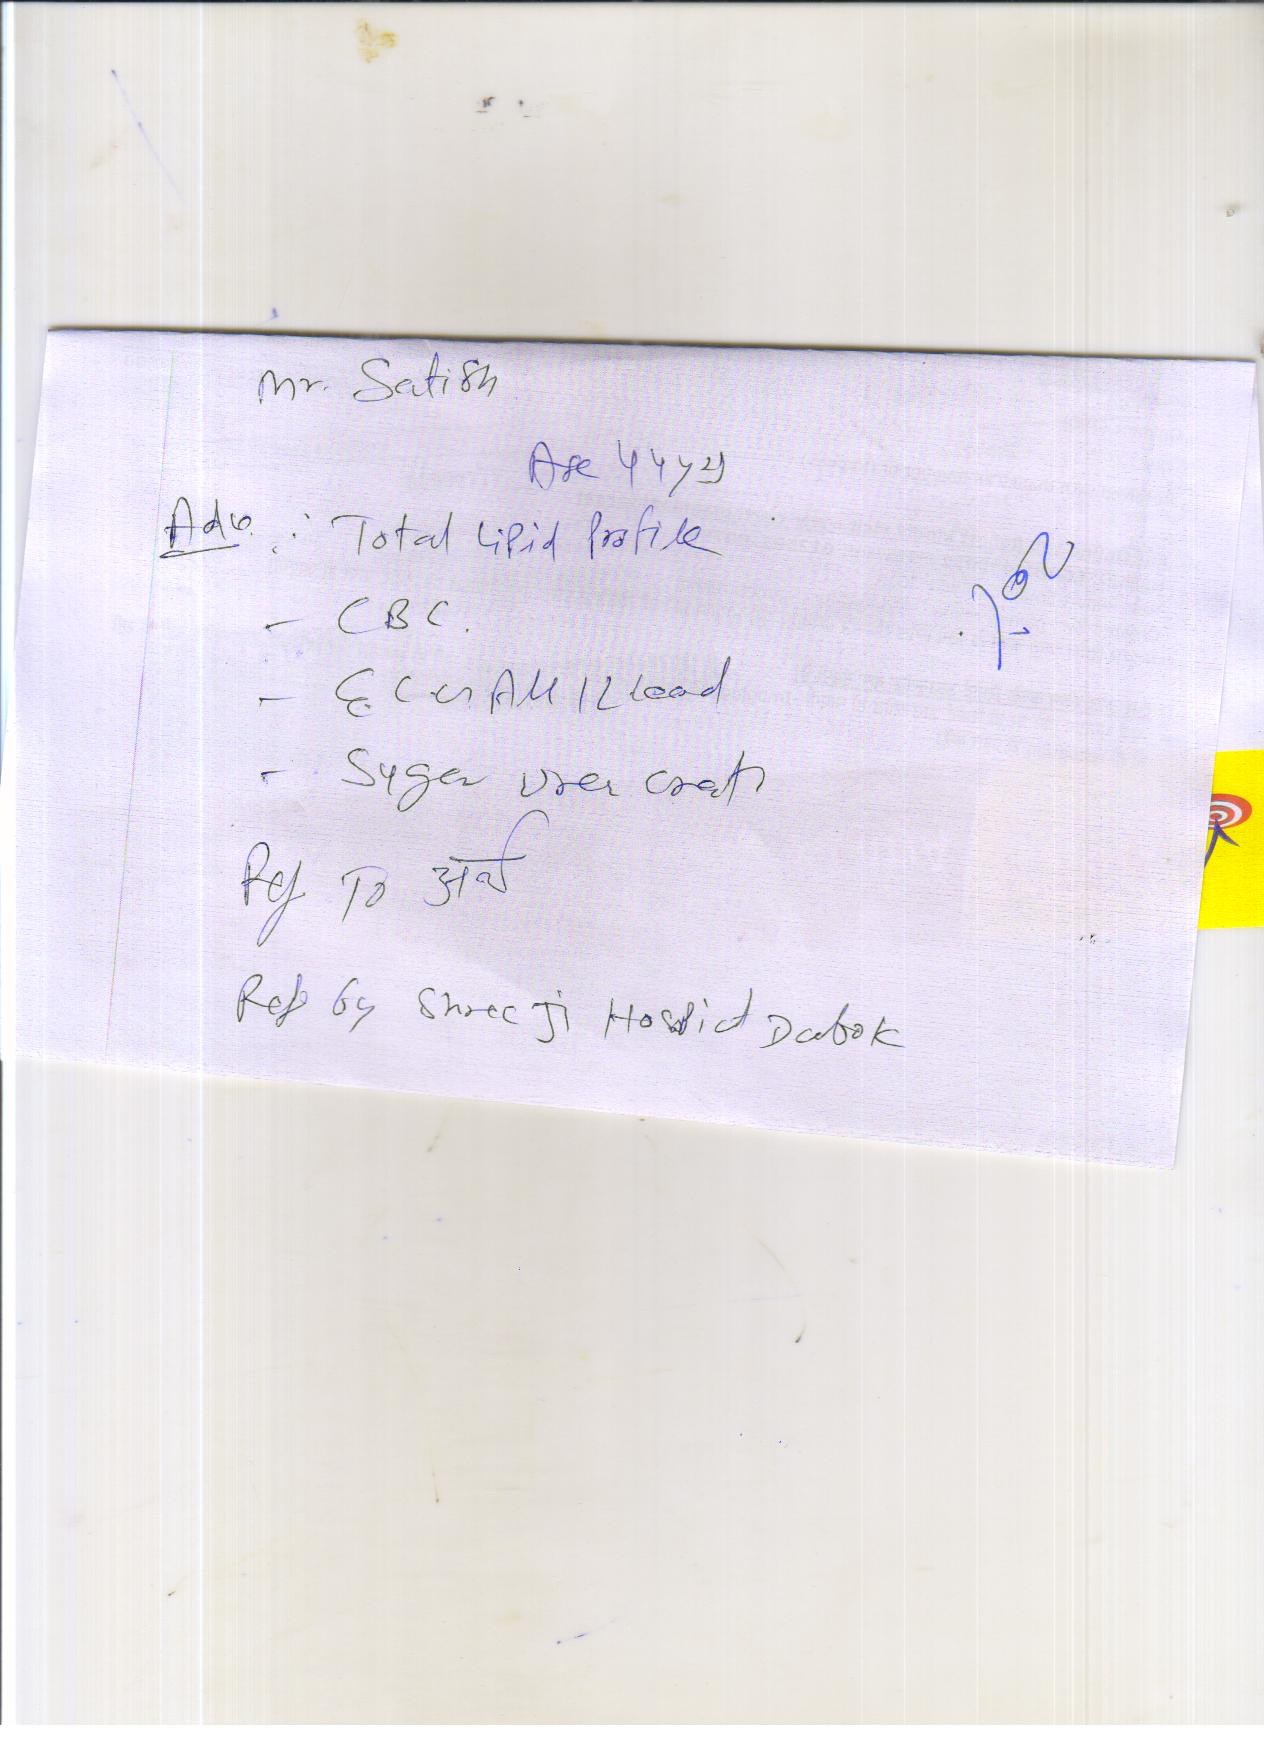 Mr. Satish
Age 44 yrs
Adv. : Total Lipid Profile
- CBC.
- ECG All 12 Lead
- Suger Urea Creat
Ref To अर्थ
Ref by Shree Ji Hospital Dabok